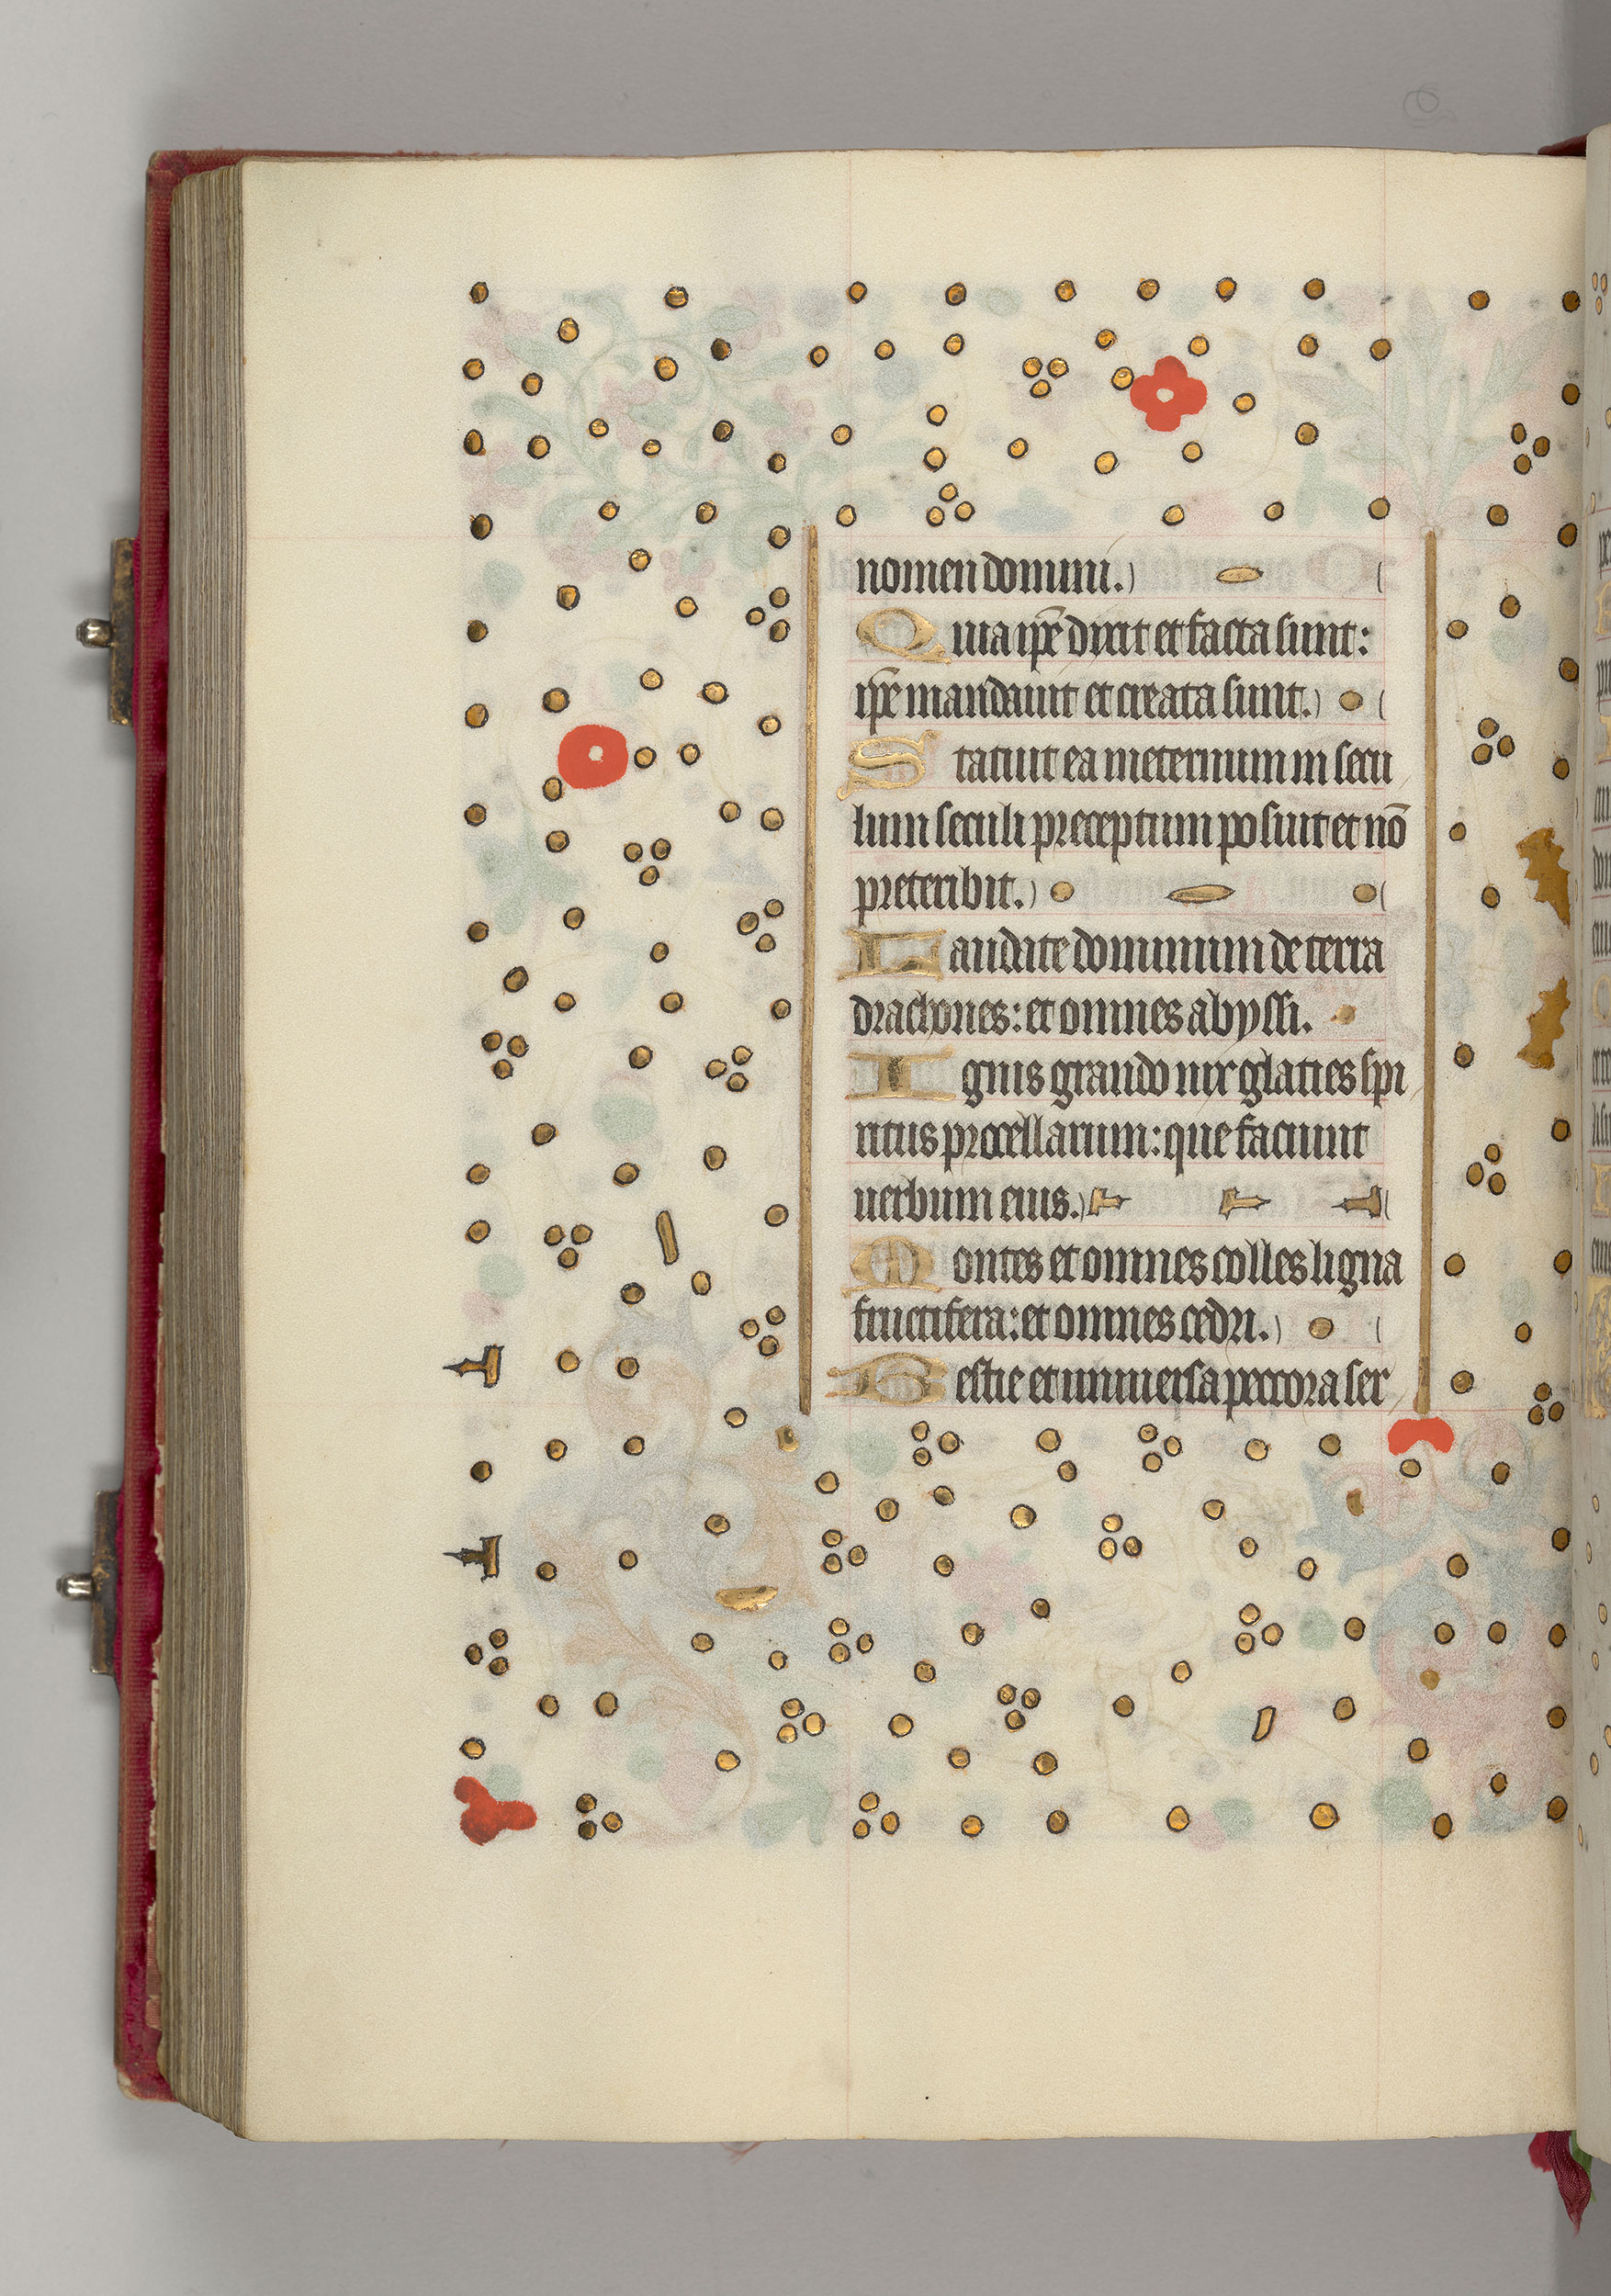 nomen domini.
Quia ip̄e dixit et facta sunt:
ip̄e mandauit et creata sunt.
Statuit ea in eternum in secu
lum seculi preceptum posuit et nō
preteribit.
Laudate dominum de terra
drachones: et omnes abyssi.
Ignis grando nix glaties spi
ritus procellarum: que faciunt
uerbum eius.
Montes et omnes colles ligna
fructifera: et omnes cedri.
Bestie et uniuersa peccora ser